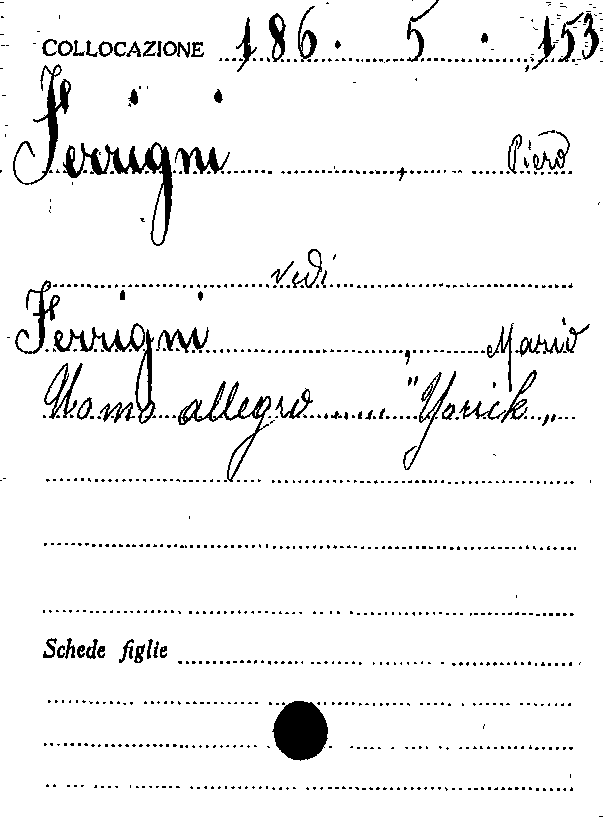 COLLOCAZIONE 186. 5. 153
Ferrigni, Piero
vedi
Ferrigni, Mario
Uomo allegro ...... "Yorick„
Schede figlie